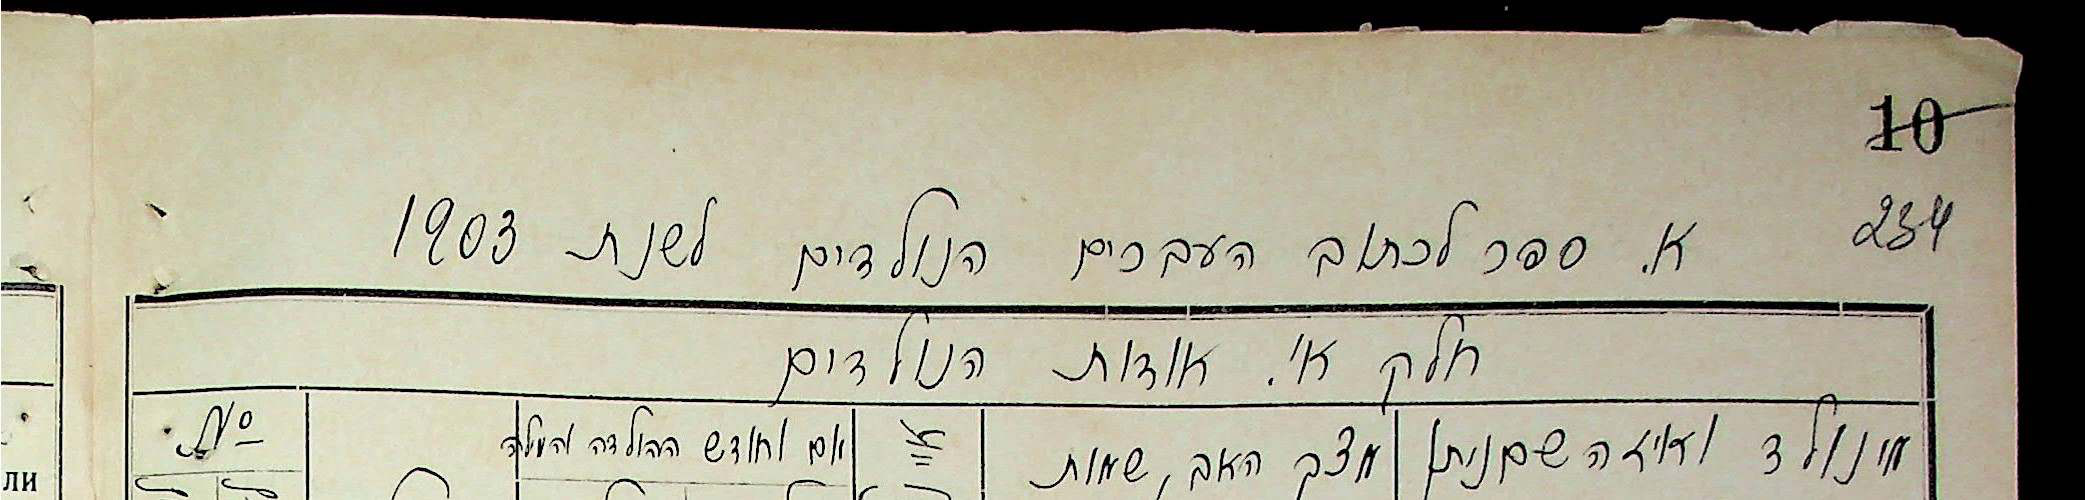 10
234
א. ספר לכתוב העברים הנולדים לשנת 1903
חלק א'. אודות הנולדים
מי נולד ואיזה שם ניתן
מצב האב, שמות
יום וחודש ההולדה והמילה
ли